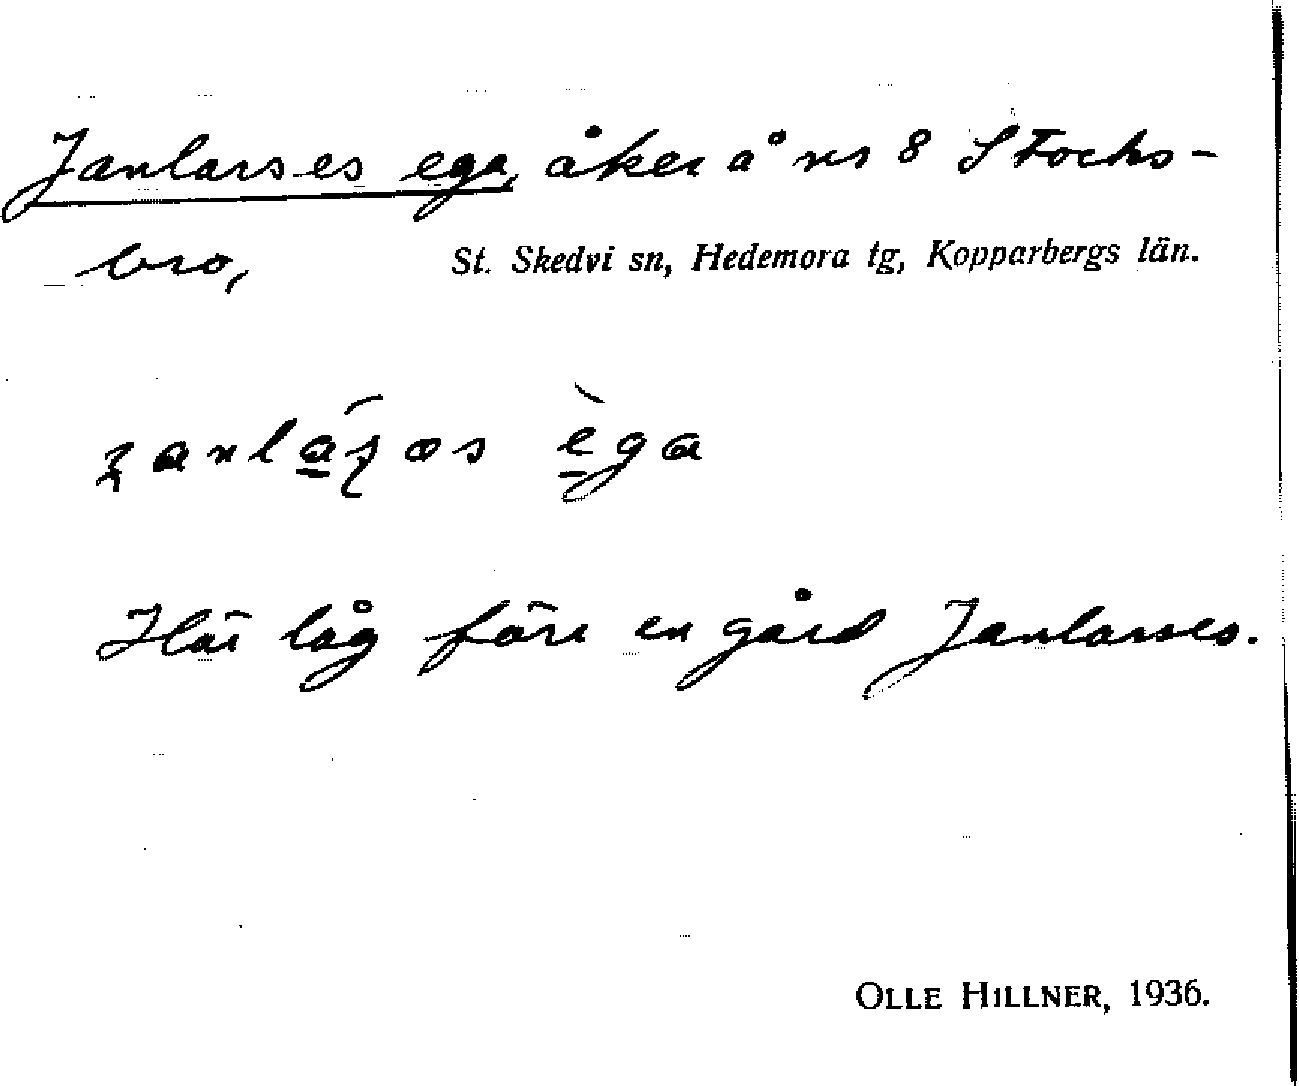 Janlarses ega, åker å nr 8 Stocks-
bro,
St. Skedvi sn, Hedemora tg, Kopparbergs län.
ega
Här låg förr en gård Janlarses.
OLLE HILLNER, 1936.